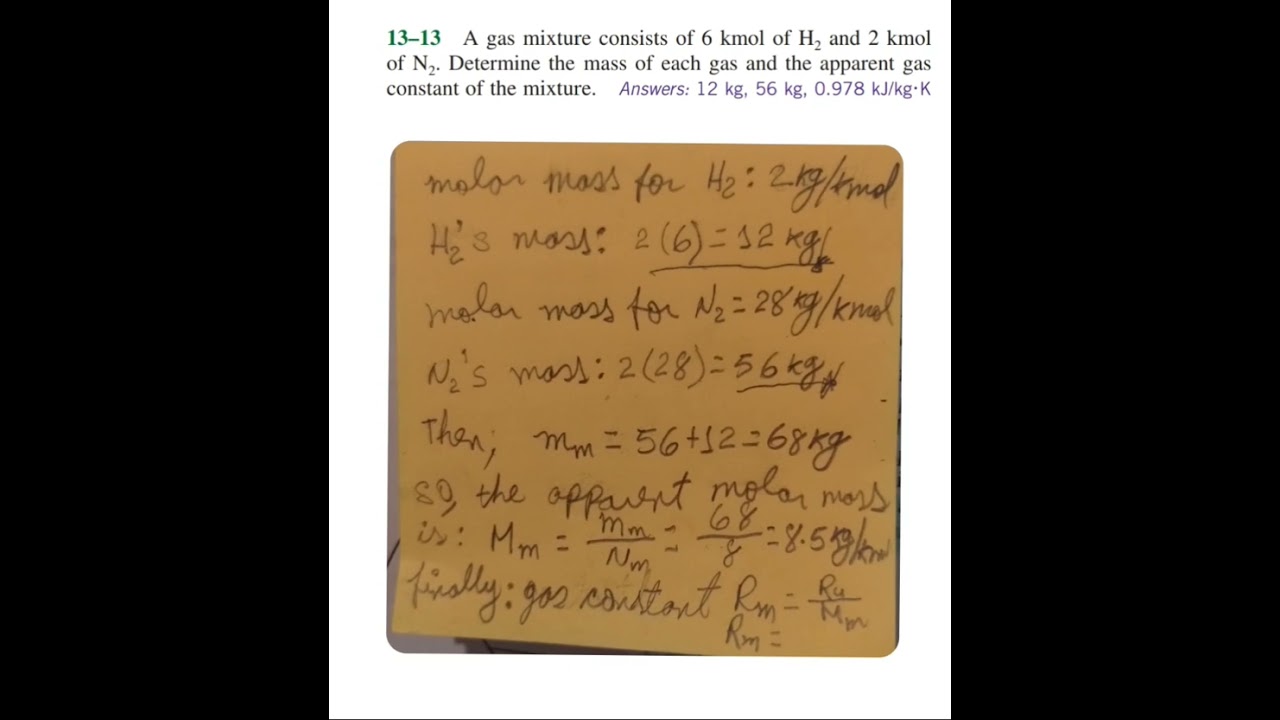 13–13 A gas mixture consists of 6 kmol of H₂ and 2 kmol
of N₂. Determine the mass of each gas and the apparent gas
constant of the mixture. Answers: 12 kg, 56 kg, 0.978 kJ/kg·K
molar mass for H₂: 2 kg/kmol
H₂'s mass: 2(6)=12 kg
molar mass for N₂=28 kg/kmol
N₂'s mass: 2(28)=56 kg
Then; mm = 56+12=68kg
so, the apparent molar mass
is: Mm = mm/Nm = 68/8 = 8.5 kg/kmol
finally: gas constant Rm = Ru/Mm
Rm =